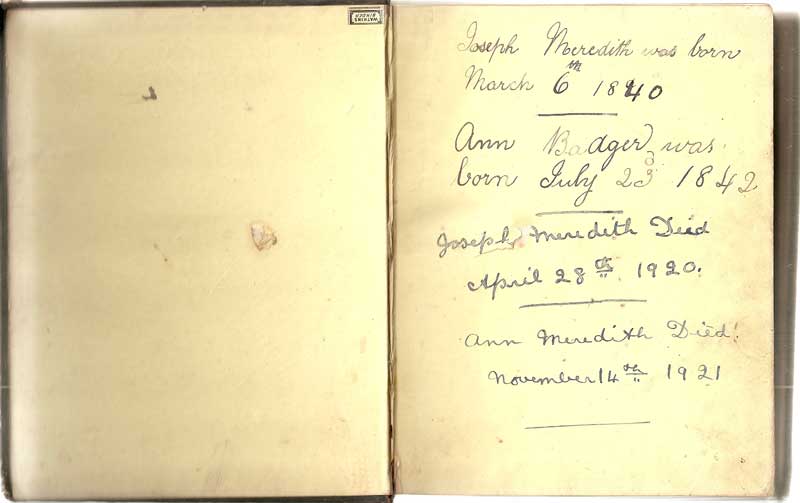 WATKINS
BINDER
Joseph Meredith was born
March 6th 1840
Ann Badger was
born July 23 1842
Joseph Meredith Died
April 28th 1920.
Ann Meredith Died.
November 14th 1921